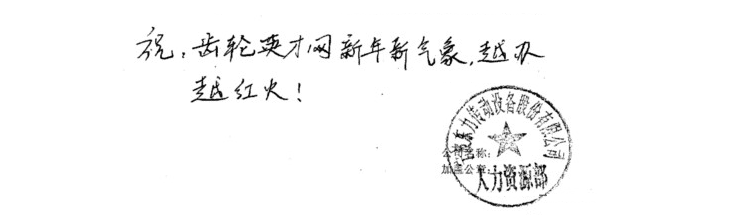 祝:齿轮英才网新年新气象,越办
越红火!
宁波东力传动设备股份有限公司
公司名称:
加盖公章:
人力资源部